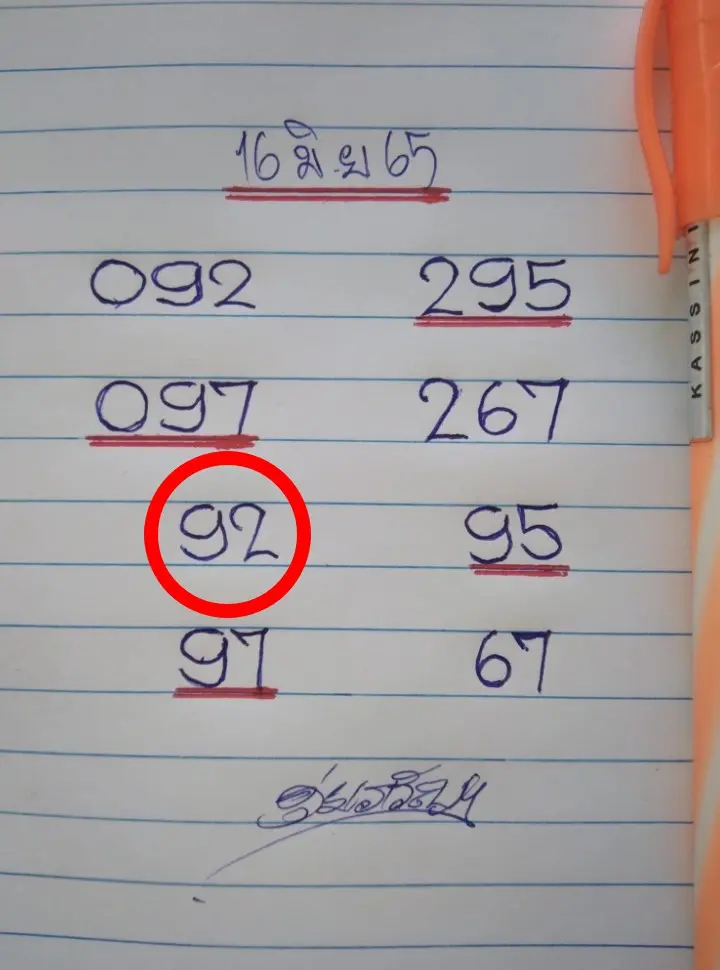 16 มิ.ย 65
092 295
097 267
92 95
97 67
KASSINI